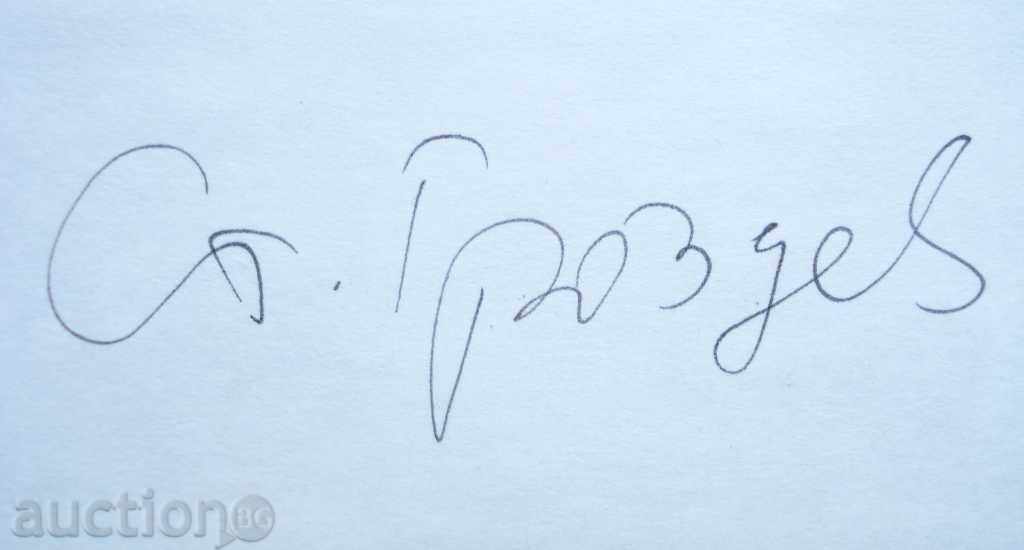 Ст. Гроздев
auction BG